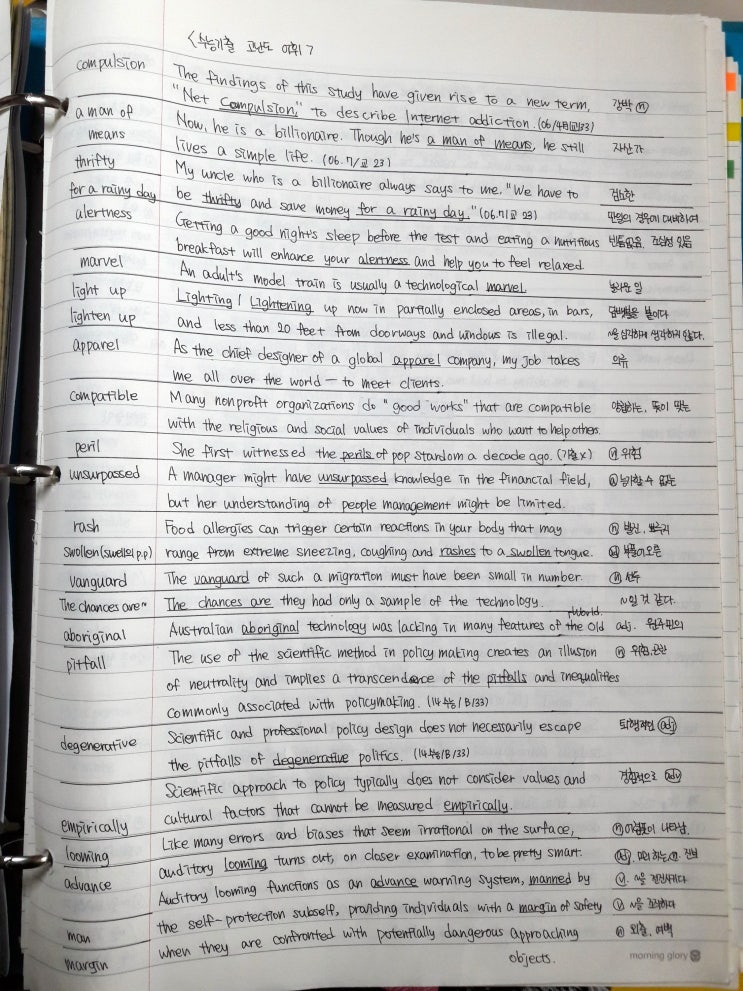 <수능기출 고난도 어휘 7
compulsion The findings of this study have given rise to a new term, 강박 (n)
"Net Compulsion," to describe Internet addiction. (06/4月/교33)
a man of means Now, he is a billionaire. Though he's a man of means, he still 자산가
lives a simple life. (06. 7/교 23)
thrifty My uncle who is a billionaire always says to me, "We have to 검소한
for a rainy day be thrifty and save money for a rainy day." (06.7/교 23) 만일의 경우에 대비하여
alertness Getting a good night's sleep before the test and eating a nutritious 빈틈없음, 조심성 있음
breakfast will enhance your alertness and help you to feel relaxed.
marvel An adult's model train is usually a technological marvel. 놀라운 일
light up Lighting / Lightening up now in partially enclosed areas, in bars, 담배불을 붙이다
lighten up and less than 20 feet from doorways and windows is illegal. ~을 심각하게 생각하지 않다.
apparel As the chief designer of a global apparel company, my job takes 의류
me all over the world — to meet clients.
compatible Many nonprofit organizations do "good works" that are compatible 양립하는, 뜻이 맞는
with the religious and social values of individuals who want to help others.
peril She first witnessed the perils of pop standom a decade ago. (기출x) (n) 위험
unsurpassed A manager might have unsurpassed knowledge in the financial field, (a) 능가할 수 없는
but her understanding of people management might be limited.
rash Food allergies can trigger certain reactions in your body that may (n) 발진, 뾰루지
swollen (swell의 p.p) range from extreme sneezing, coughing and rashes to a swollen tongue. 부풀어오른
vanguard The vanguard of such a migration must have been small in number. (n) 선두
The chances are~ The chances are they had only a sample of the technology. ~일 것 같다.
aboriginal Australian aboriginal technology was lacking in many features of the Old World. adj. 원주민의
pitfall The use of the scientific method in policy making creates an illusion (n) 위험, 곤란
of neutrality and implies a transcendence of the pitfalls and inequalities
commonly associated with policymaking. (14수능/B/33)
degenerative Scientific and professional policy design does not necessarily escape 퇴행적인 (adj)
the pitfalls of degenerative politics. (14수능/B/33)
Scientific approach to policy typically does not consider values and 경험적으로 (adv)
empirically cultural factors that cannot be measured empirically.
looming Like many errors and biases that seem irrational on the surface, (n) 어렴풋이 나타남,
auditory looming turns out, on closer examination, to be pretty smart. (adj).
advance Auditory looming functions as an advance warning system, manned by (v).
man the self-protection subself, providing individuals with a margin of safety (v) ~을 조작하다
margin when they are confronted with potentially dangerous approaching (n) 여백
objects.
morning glory